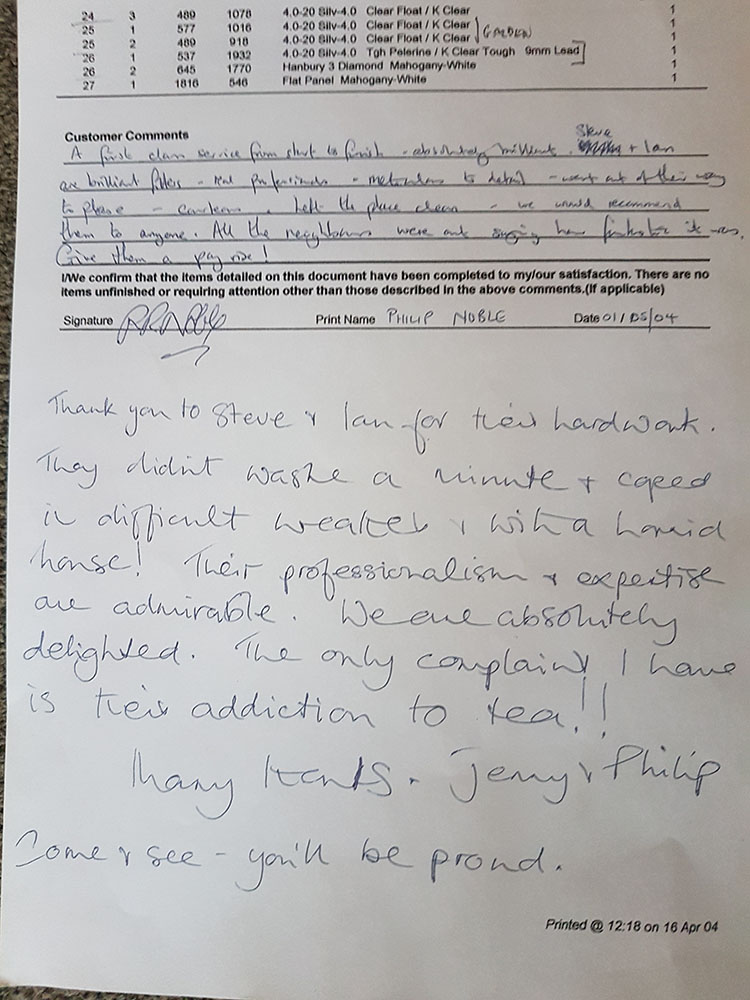 24 3 489 1078 4.0-20 Silv-4.0 Clear Float / K Clear 1
25 1 577 1016 4.0-20 Silv-4.0 Clear Float / K Clear 1
25 2 489 918 4.0-20 Silv-4.0 Clear Float / K Clear 1
26 1 537 1932 4.0-20 Silv-4.0 Tgh Pelerine / K Clear Tough 9mm Lead 1
26 2 645 1770 Hanbury 3 Diamond Mahogany-White 1
27 1 1816 546 Flat Panel Mahogany-White 1
Customer Comments
Steve
A first class service from start to finish - absolutely brilliant. + Ian
are brilliant fitters - real professionals - to detail - went out of their way
to please - . Left the place clean - we would recommend
them to anyone. All the neighbours were out saying how fantastic it was.
Give them a pay rise!
I/We confirm that the items detailed on this document have been completed to my/our satisfaction. There are no
items unfinished or requiring attention other than those described in the above comments.(If applicable)
Signature Print Name PHILIP NOBLE Date 01/05/04
Thank you to Steve & Ian for their hardwork.
They didn't waste a minute & coped
in difficult weather & with a horrid
house! Their professionalism & expertise
are admirable. We are absolutely
delighted. The only complaint I have
is their addiction to tea!!
Many thanks. Jenny & Philip
Come & see - you'll be proud.
Printed @ 12:18 on 16 Apr 04